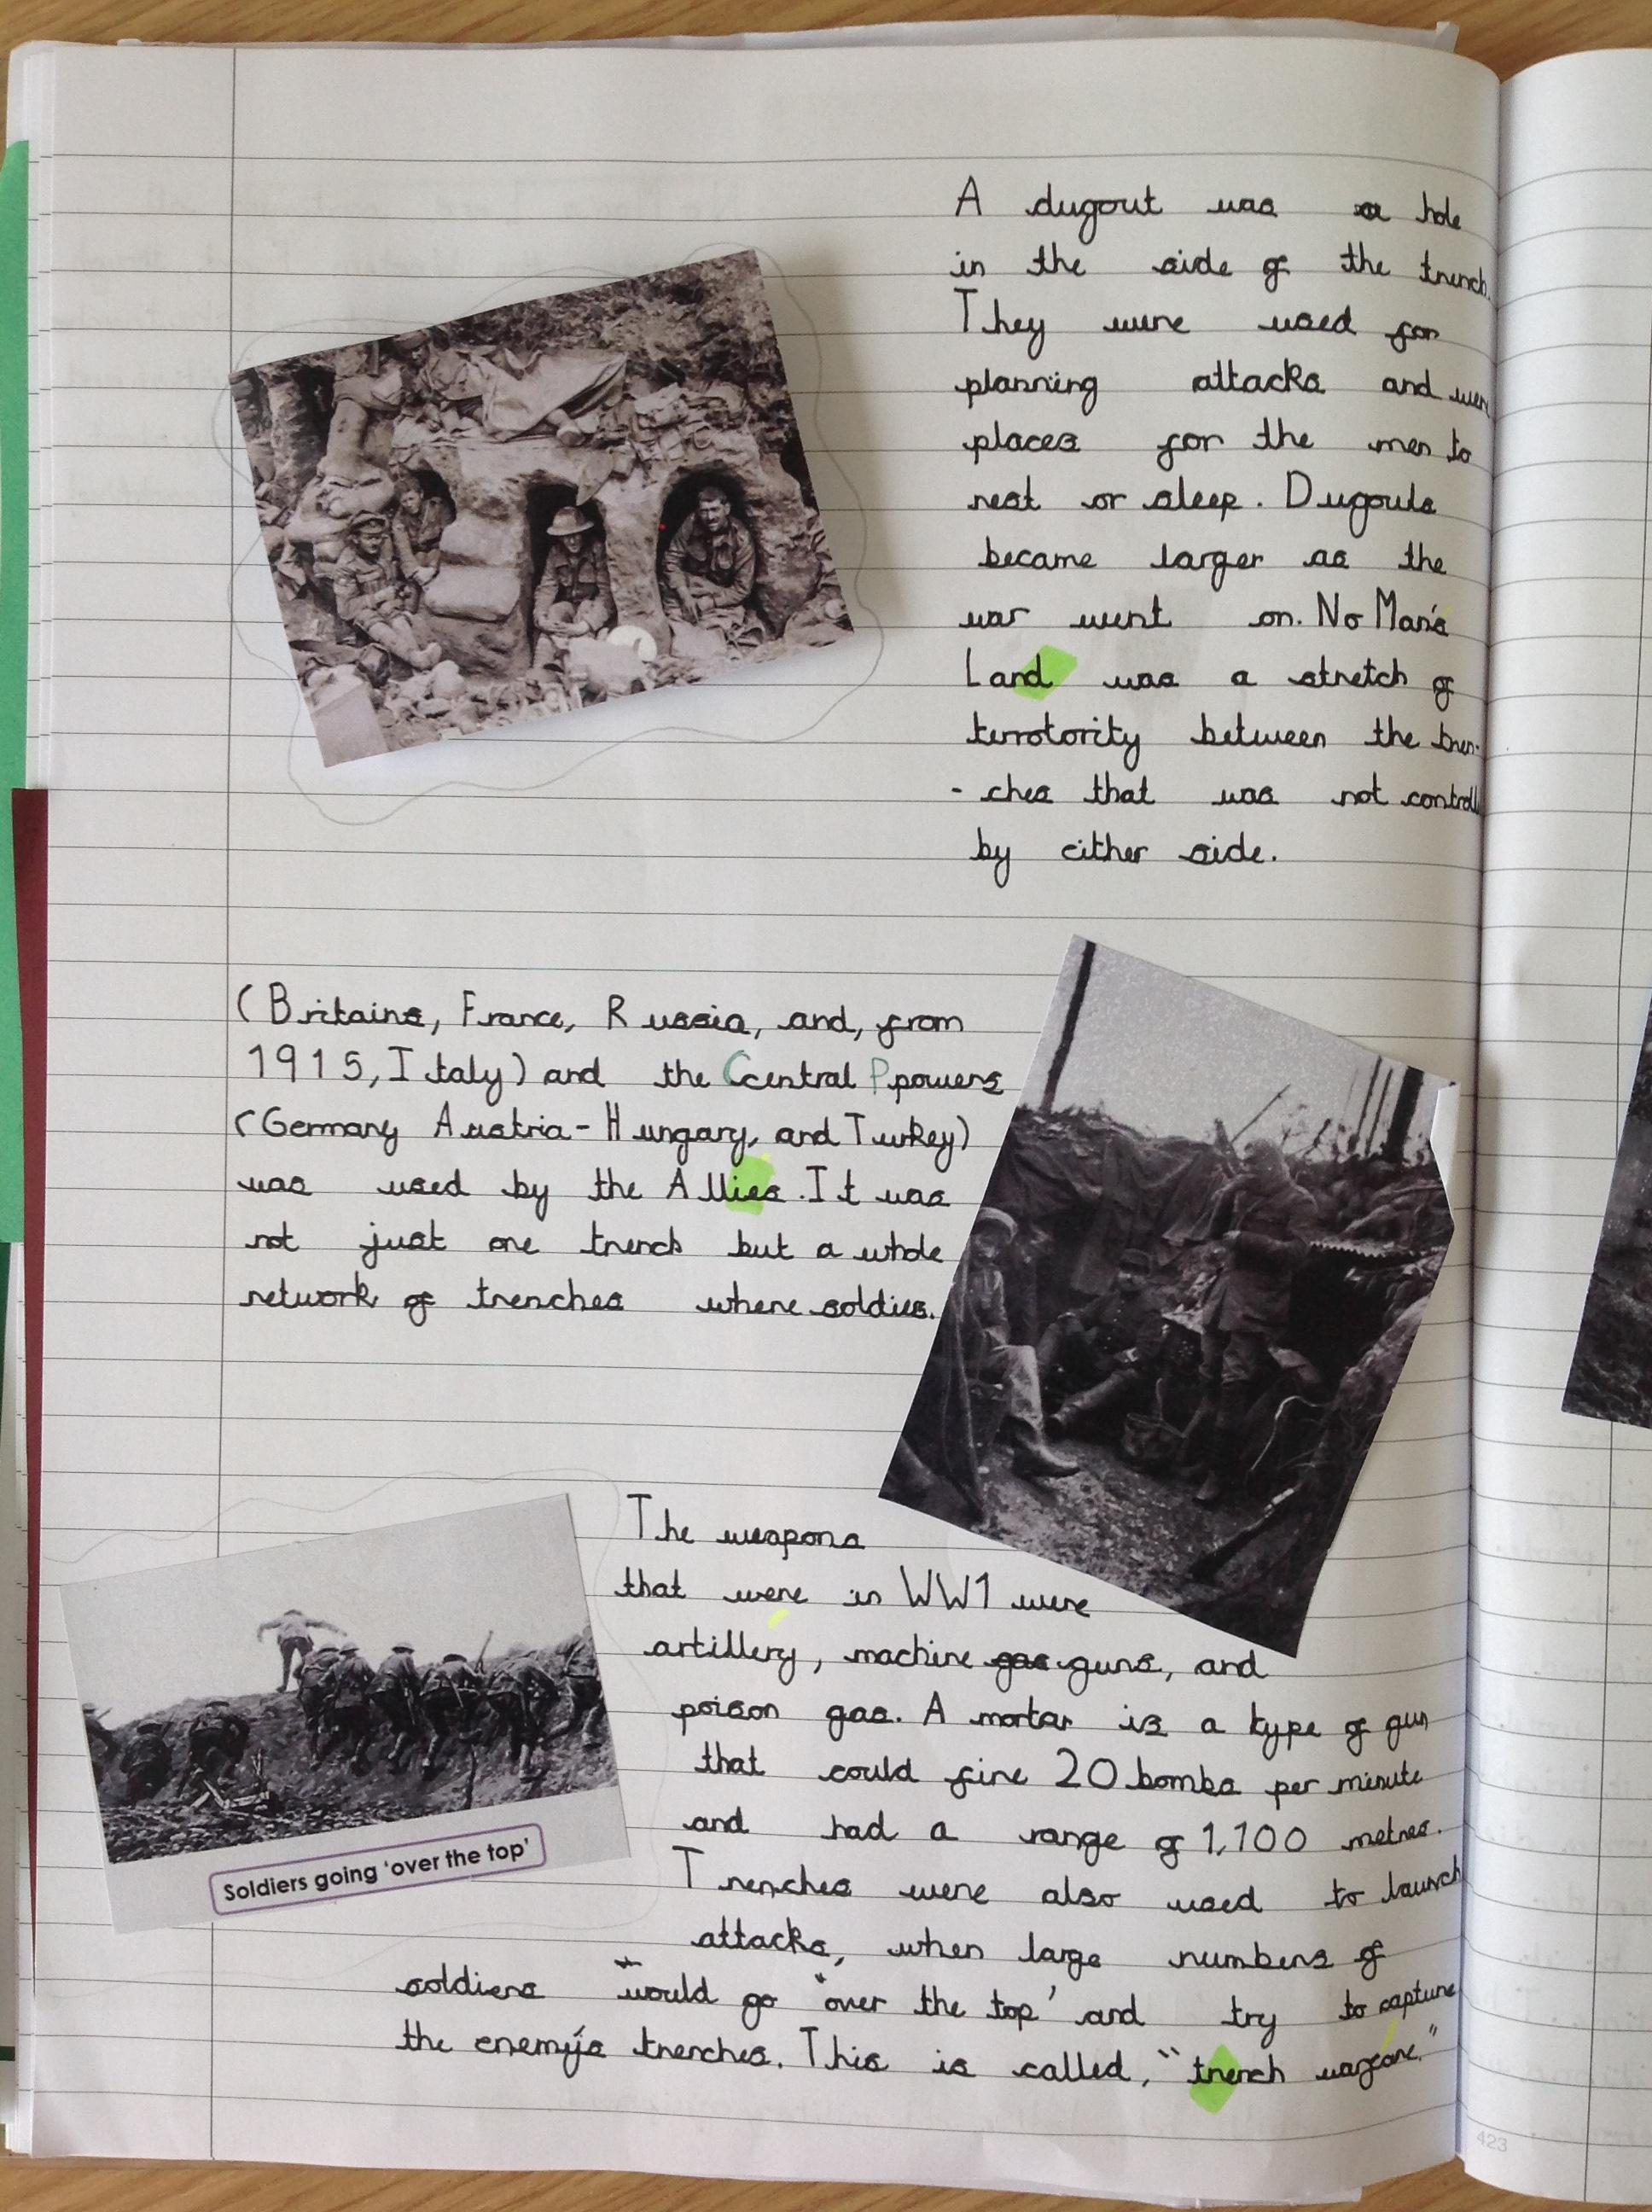 A dugout was a hole
in the side of the trench.
They were used for
planning attacks and were
places for the men to
rest or sleep. Dugouts
became larger as the
war went on. No Man's
Land was a stretch of
terrotority between the tren-
- ches that was not controll
by either side.
(Britains, France, Russia, and, from
1915, Italy) and the Central Powers
(Germany Austria-Hungary, and Turkey)
was used by the Allies. It was
not just one trench but a whole
network of trenches where soldies.
The weapons
that were in WW1 were
artillery, machine gas guns, and
poison gas. A mortar is a type of gun
that could fire 20 bombs per minute
and had a range of 1,100 metres.
Trenches were also used to launch
attacks, when large numbers of
soldiers would go 'over the top' and try to capture
the enemy's trenches. This is called, "trench warfare."
Soldiers going 'over the top'
423